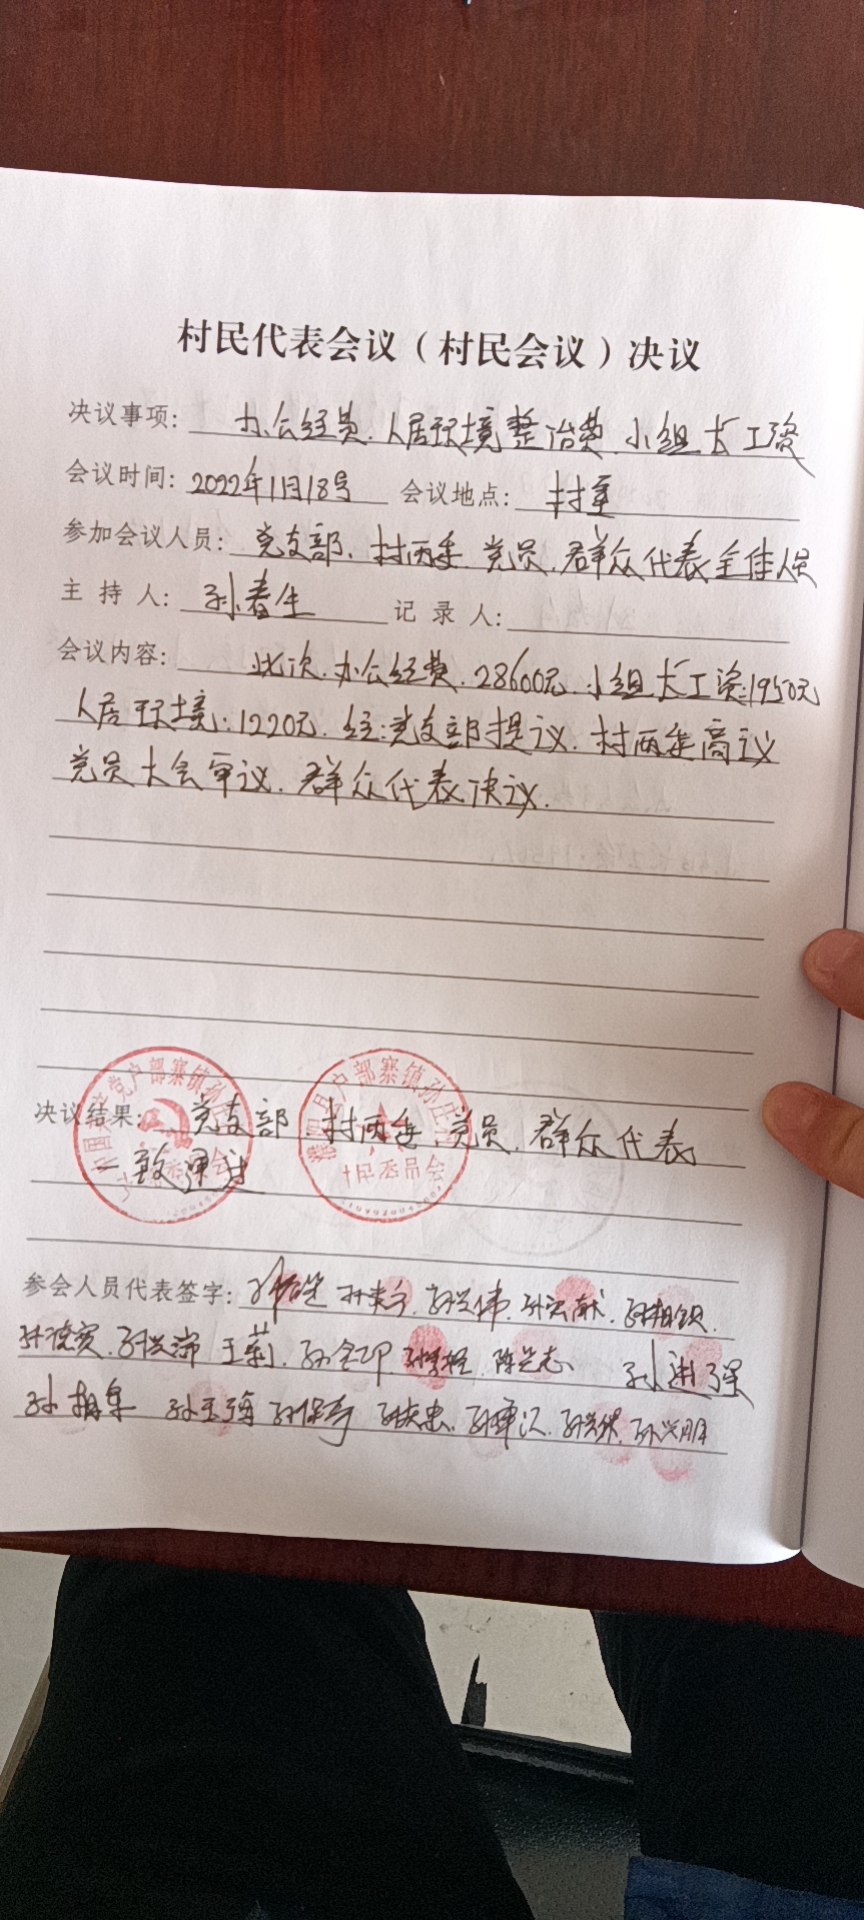 村民代表会议（村民会议）决议
决议事项: 办公经费.人居环境整治费.小组长工资
会议时间: 2022年11月18号 会议地点: 村室
参加会议人员: 党支部.村两委.党员.群众代表全体人员
主 持 人: 孙春生 记 录 人:
会议内容: 此次.办公经费.28600元.小组长工资:1950元
人居环境:1220元.经:党支部提议.村两委商议
党员大会审议.群众代表决议.
决议结果: 党支部.村两委.党员.群众代表
一致通过
户部寨镇孙庄
户部寨镇孙庄
村民委员会
参会人员代表签字: 孙兴伟.孙宏献.
王莉.孙全印 陈兰志 孙进强
孙玉海 孙保奇 孙兴朋